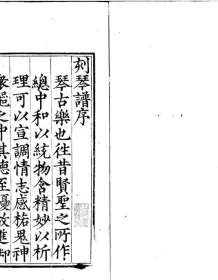 刻琴譜序
琴古樂也徃昔賢聖之所作
總中和以統物含精妙以析
理可以宣調情志感祐鬼神
衆器之中其德至優故進御